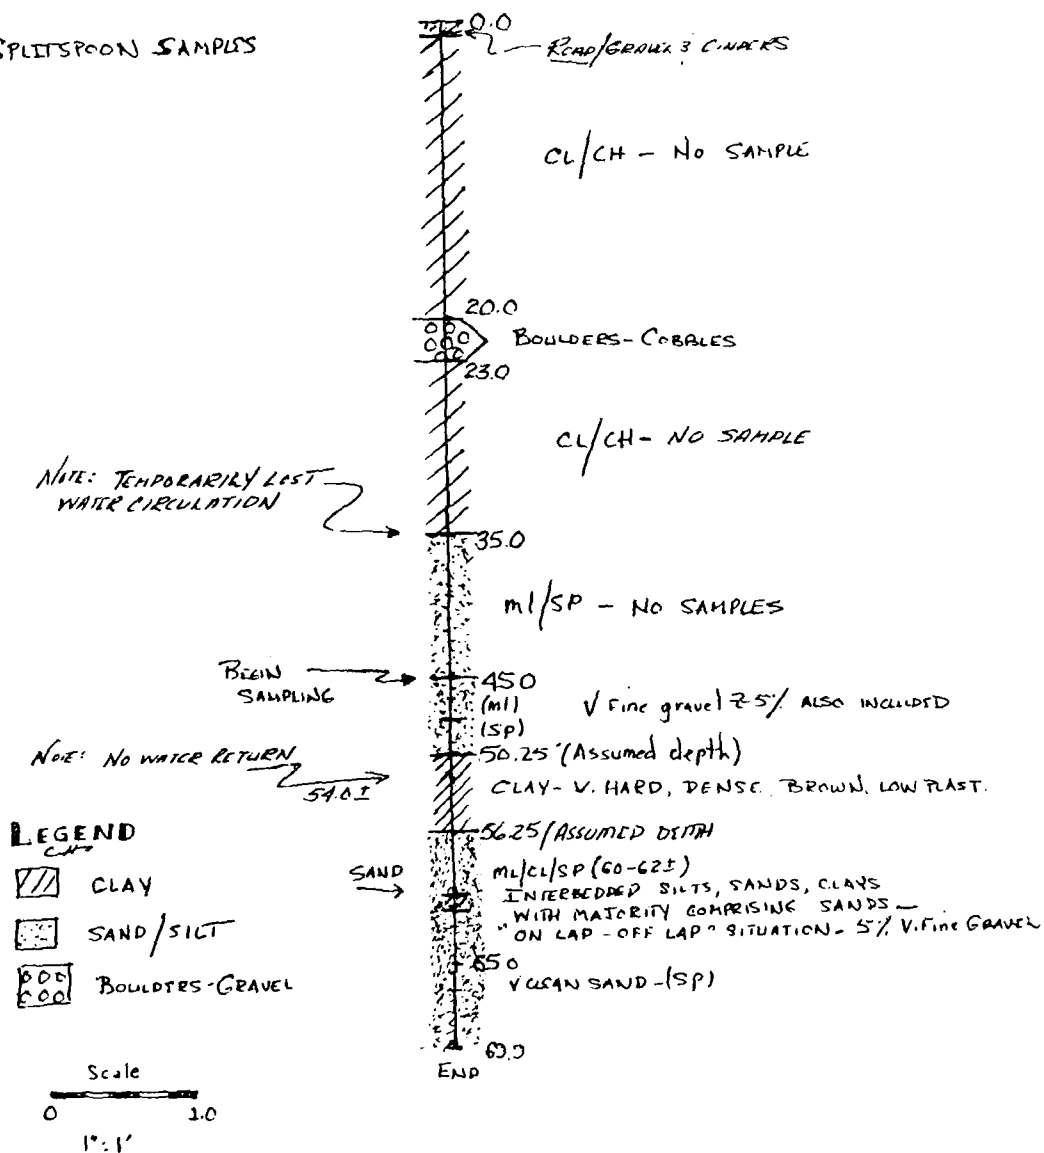 SPLITSPOON SAMPLES
0.0
ROAD/GRAVEL & CINDERS
CL/CH - NO SAMPLE
20.0
BOULDERS-COBBLES
23.0
CL/CH - NO SAMPLE
NOTE: TEMPORARILY LOST
WATER CIRCULATION
35.0
ml/SP - NO SAMPLES
BEGIN
SAMPLING
45.0
(ml)
(SP)
V Fine gravel ≈ 5% ALSO INCLUDED
NOTE: NO WATER RETURN
54.0±
50.25' (Assumed depth)
CLAY - V. HARD, DENSE, BROWN, LOW PLAST.
56.25 (ASSUMED DEPTH
LEGEND
CLAY
SAND
ML/CL/SP (60-62±)
INTERBEDDED SILTS, SANDS, CLAYS
WITH MAJORITY COMPRISING SANDS -
"ON LAP - OFF LAP" SITUATION - 5% V. Fine GRAVEL
SAND/SILT
65.0
V CLEAN SAND - (SP)
BOULDERS-GRAVEL
END
Scale
0
1":1'